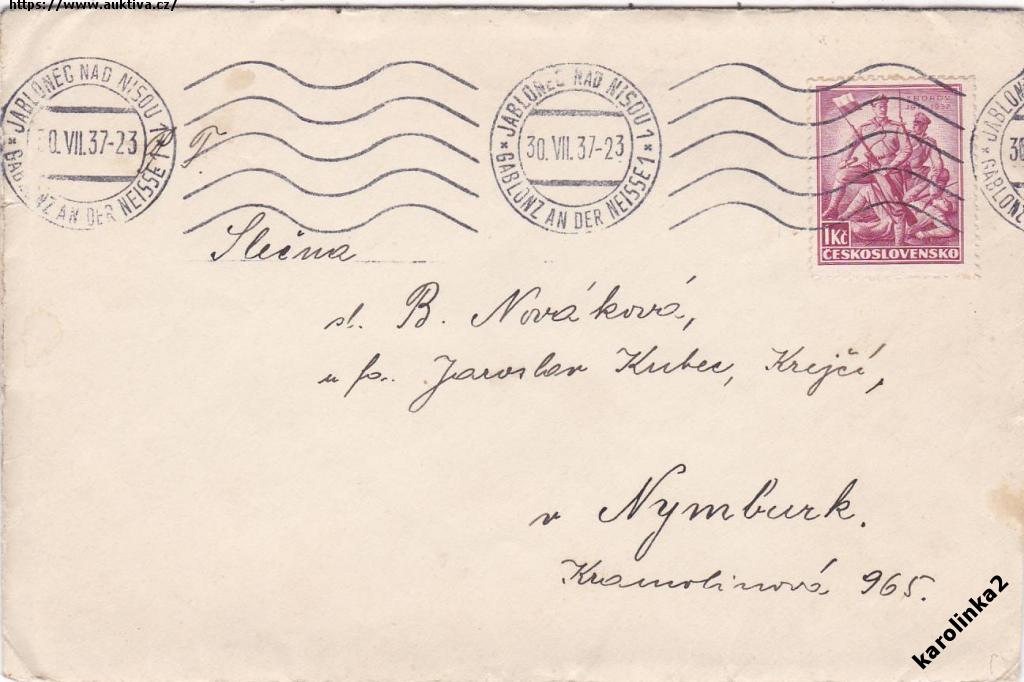 https://www.auktiva.cz/
*JABLONEC NAD NISOU 1*
30.VII.37-23
GABLONZ AN DER NEISSE 1
*JABLONEC NAD NISOU 1*
30.VII.37-23
GABLONZ AN DER NEISSE 1
ZBOROV
1917-1937
1 Kč
ČESKOSLOVENSKO
Slečna
sl. B. Nováková,
u fa. Jaroslav Kubec, Krejčí,
v Nymburk.
Kramolinová 965.
karolinka2